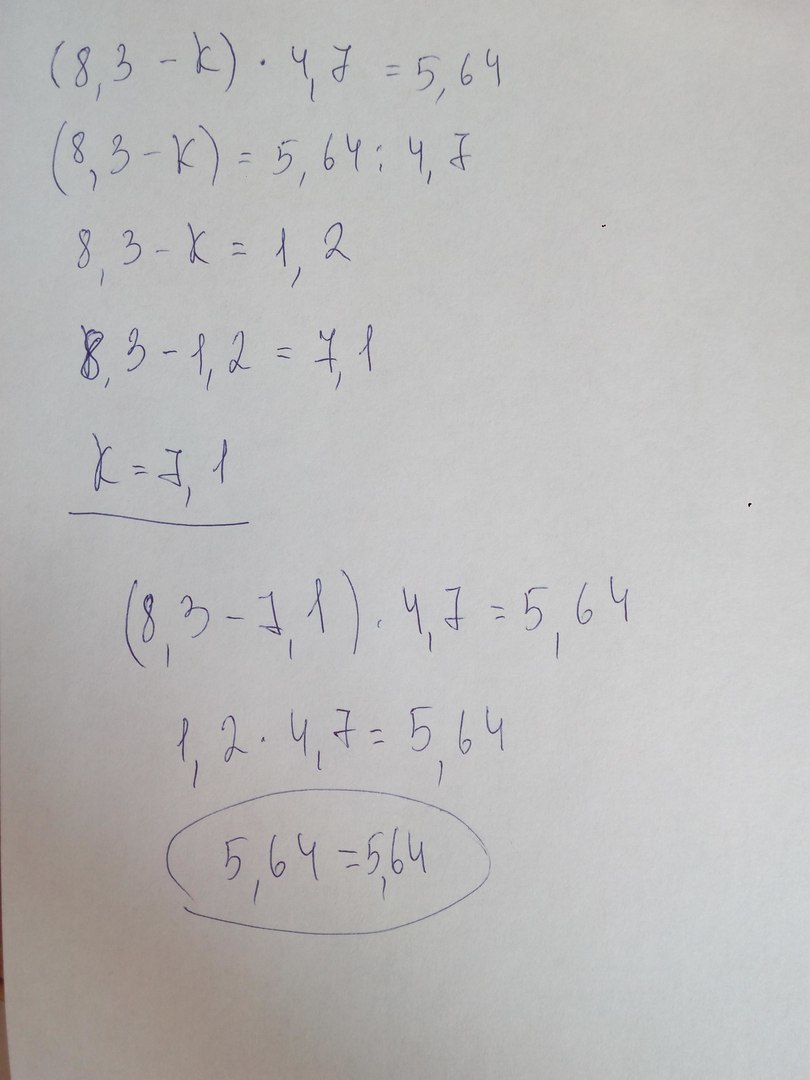 (8,3 - k) · 4,7 = 5,64
(8,3 - k) = 5,64 : 4,7
8,3 - k = 1,2
8,3 - 1,2 = 7,1
k = 7,1
(8,3 - 7,1) · 4,7 = 5,64
1,2 · 4,7 = 5,64
5,64 = 5,64